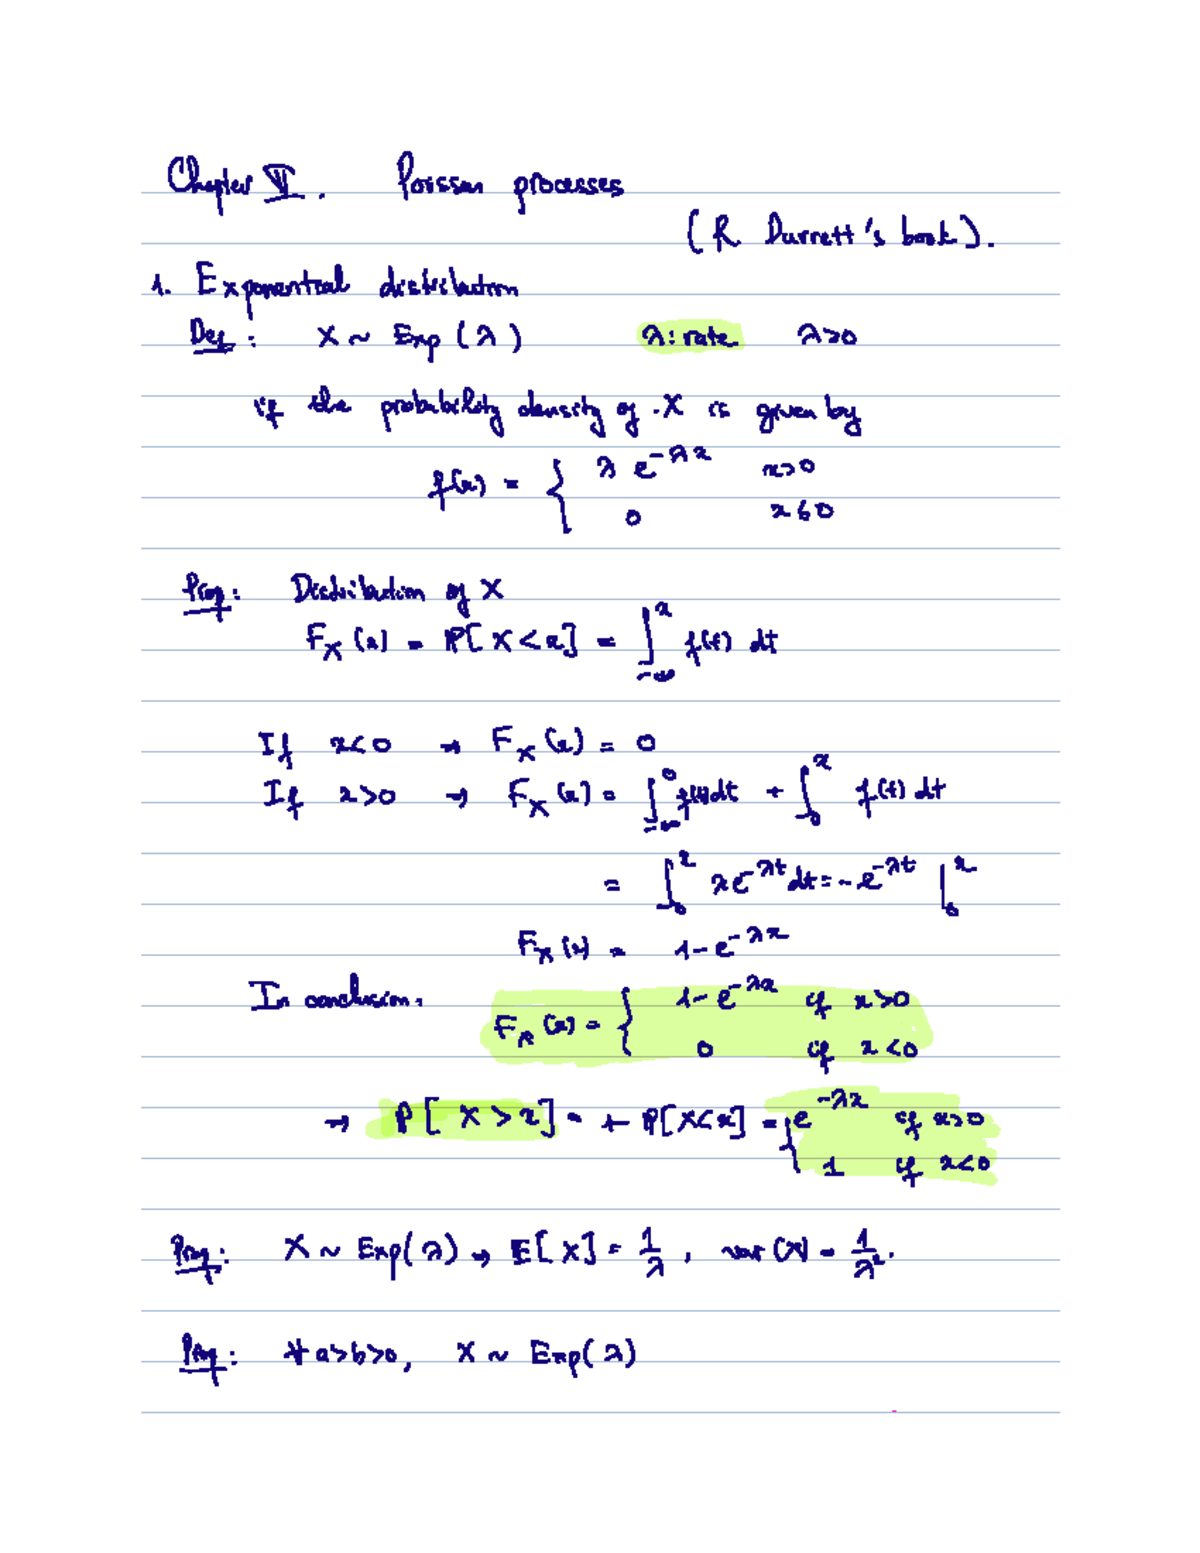 Chapter VI. Poisson processes
(R Durrett's book).
1. Exponential distribution
Def: X ~ Exp(λ) λ: rate λ>0
if the probability density of X is given by
f(x) = { λ e^{-λx} x>0
0 x≤0
Prop: Distribution of X
F_X(x) = P[X<x] = ∫_{-∞}^{x} f(t) dt
If x<0 → F_X(x) = 0
If x>0 → F_X(x) = ∫_{-∞}^{0} f(t)dt + ∫_{0}^{x} f(t) dt
= ∫_{0}^{x} λe^{-λt}dt = -e^{-λt} |_{0}^{x}
F_X(x) = 1-e^{-λx}
In conclusion: F_X(x) = { 1-e^{-λx} if x>0
0 if x<0
→ P[X>x] = 1-P[X<x] = { e^{-λx} if x>0
1 if x<0
Prop: X ~ Exp(λ) → E[X] = 1/λ, var(X) = 1/λ².
Prop: ∀ a>b>0, X ~ Exp(λ)